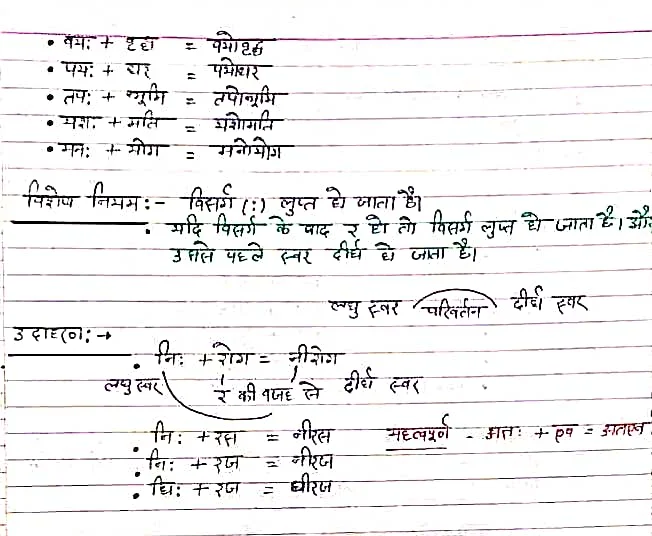 • वयः + वृद्ध = वयोवृद्ध
• पयः + धर = पयोधर
• तपः + भूमि = तपोभूमि
• यशः + मति = यशोमति
• मनः + योग = मनोयोग
विशेष नियम :- विसर्ग (:) लुप्त हो जाता है।
• यदि विसर्ग के बाद र हो तो विसर्ग लुप्त हो जाता है। और
उससे पहले स्वर दीर्घ हो जाता है।
लघु स्वर परिवर्तन दीर्घ स्वर
उदाहरण: →
• निः + रोग = नीरोग
लघु स्वर र की वजह से दीर्घ स्वर
• निः + रस = नीरस महत्वपूर्ण - अतः + एव = अतएव
• निः + रज = नीरज
• धिः + रज = धीरज